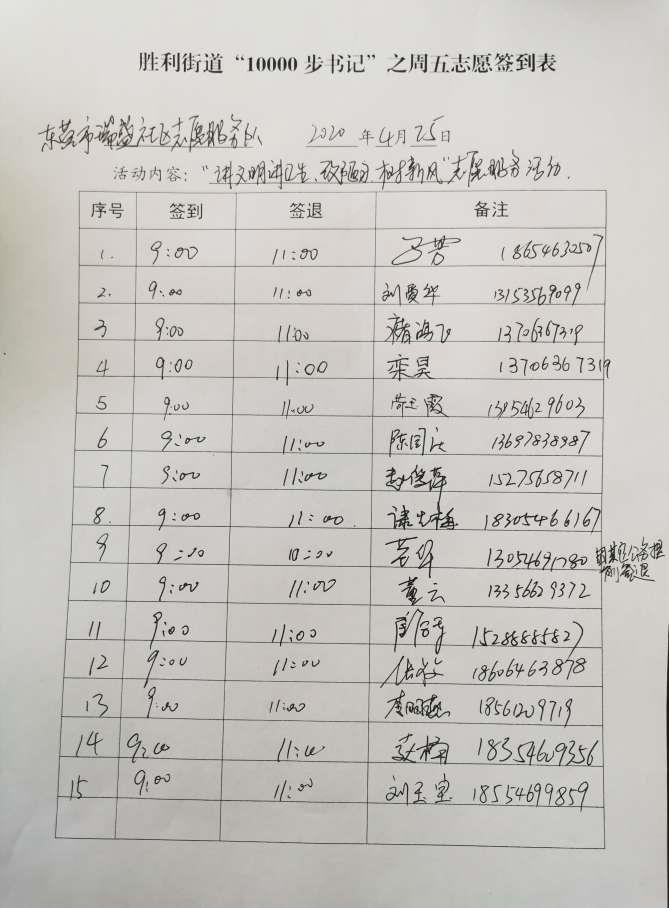 胜利街道“10000步书记”之周五志愿签到表
东营市 社区志愿服务队 2020年4月25日
活动内容：“讲文明讲卫生、改陋习 树新风”志愿服务活动.
序号 签到 签退 备注
1. 9:00 11:00 18654632507
2. 9:00 11:00 刘爱华 13153569099
3 9:00 11:00 13706367319
4 9:00 11:00 栾昊 13706367319
5 9:00 11:00 霞 13954629603
6 9:00 11:00 陈国庆 13697838987
7 9:00 11:00 赵俊萍 15275658711
8. 9:00 11:00. 谏先梅 18305466167
9 9:00 10:00
10 9:00 11:00 董云 13356629372
11 9:00 11:00 15288885827
12 9:00 11:00 18606463878
13 9:00 11:00 李 18561209719
14 9:00 11:00 楠 18354609356
15 9:00 11:00 刘玉宝 18554699859